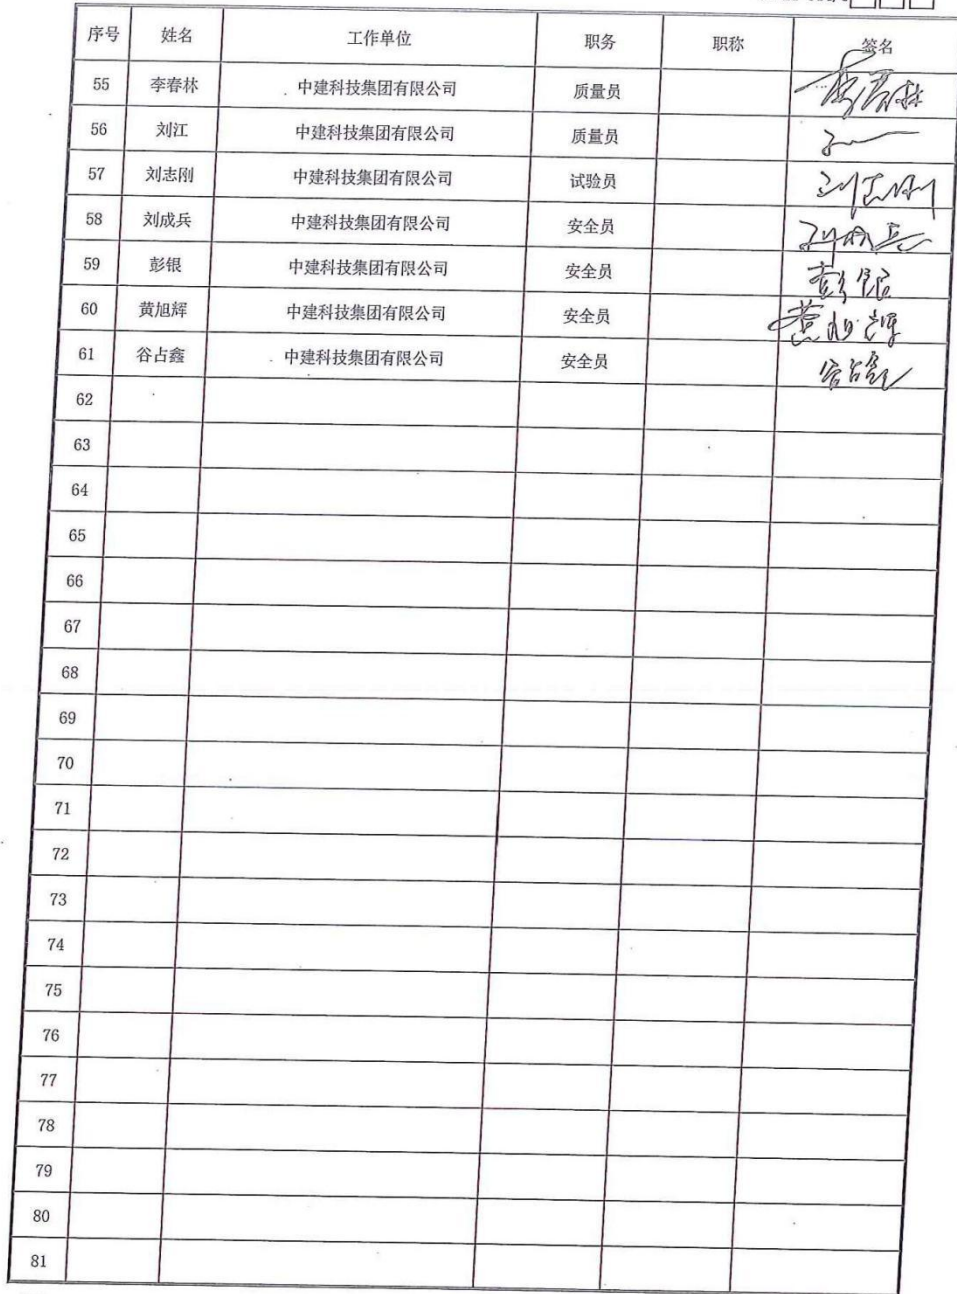 序号 姓名 工作单位 职务 职称 签名
55 李春林 中建科技集团有限公司 质量员 李春林
56 刘江 中建科技集团有限公司 质量员
57 刘志刚 中建科技集团有限公司 试验员 刘志刚
58 刘成兵 中建科技集团有限公司 安全员 刘成兵
59 彭银 中建科技集团有限公司 安全员 彭银
60 黄旭辉 中建科技集团有限公司 安全员 黄旭辉
61 谷占鑫 中建科技集团有限公司 安全员 谷占鑫
62
63
64
65
66
67
68
69
70
71
72
73
74
75
76
77
78
79
80
81